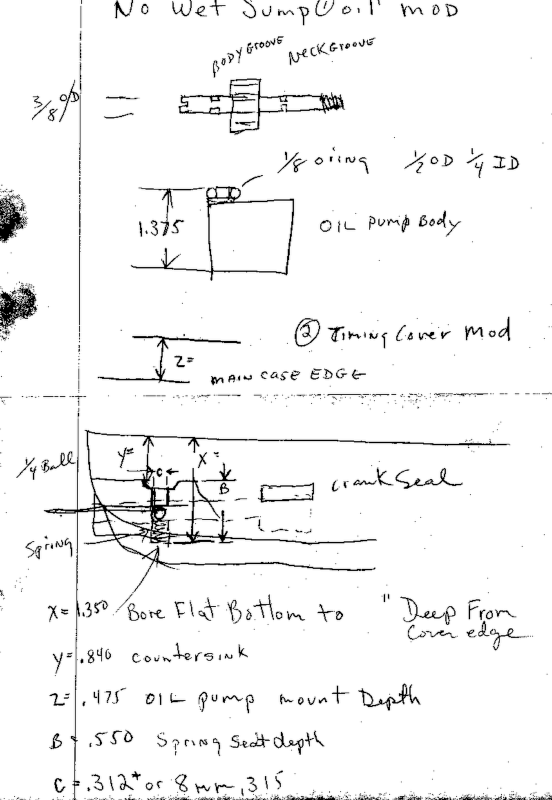 No Wet Sump ① oil" mod
BODY GROOVE NECK GROOVE
3/8 O/D
1/8 oring 1/2 OD 1/4 ID
1.375
OIL Pump Body
② Timing Cover Mod
Z=
MAIN CASE EDGE
Y=
X=
C
B
1/4 Ball
Crank Seal
Spring
X= 1.350 Bore Flat Bottom to " Deep From
Cover edge
Y= .840 countersink
Z= .475 OIL pump mount Depth
B = .550 Spring Seat depth
C = .312+ or 8mm .315